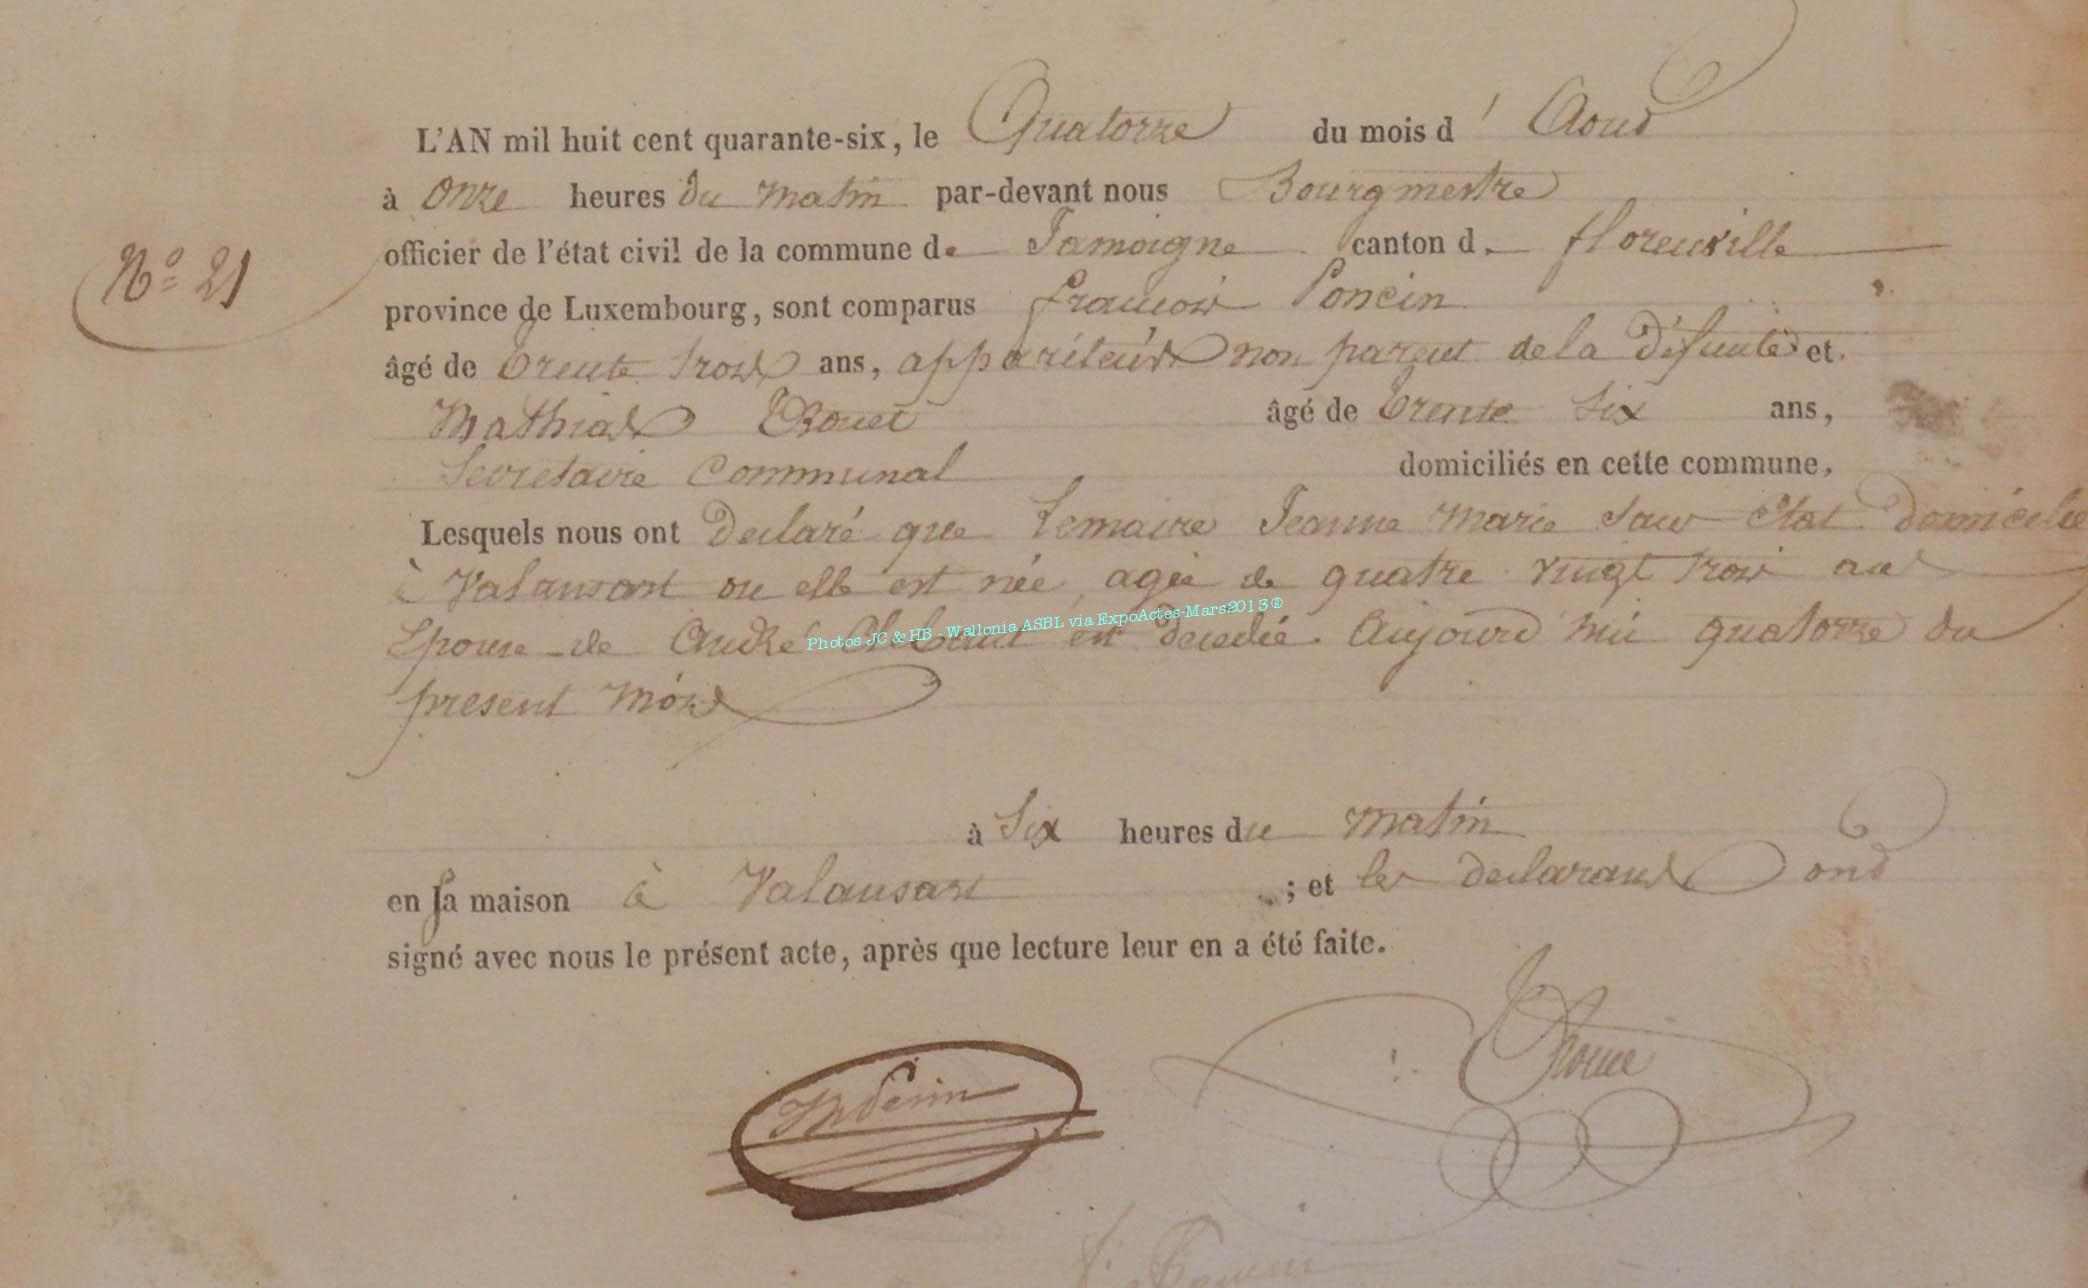 L'AN mil huit cent quarante-six, le Quatorze du mois d' Aout
à onze heures du matin par-devant nous Bourgmestre
officier de l'état civil de la commune de Jamoigne canton d. florenville
N° 21
province de Luxembourg, sont comparus francois Poncin
âgé de trente trois ans, appariteur non parent de la défunte et
Mathias âgé de trente six ans,
Secretaire Communal domiciliés en cette commune,
Lesquels nous ont declaré que Lemaire Jeanne Marie sans Etat domiciliée
à Valansart ou elle est née, agée de quatre vingt trois ans
Epouse de André est decedée Aujourd'hui quatorze du
Photos JC & HB - Wallonia ASBL via ExpoActes-Mars2013®
present mois
à six heures du matin
en sa maison à Valansart ; et les declarans ont
signé avec nous le présent acte, après que lecture leur en a été faite.